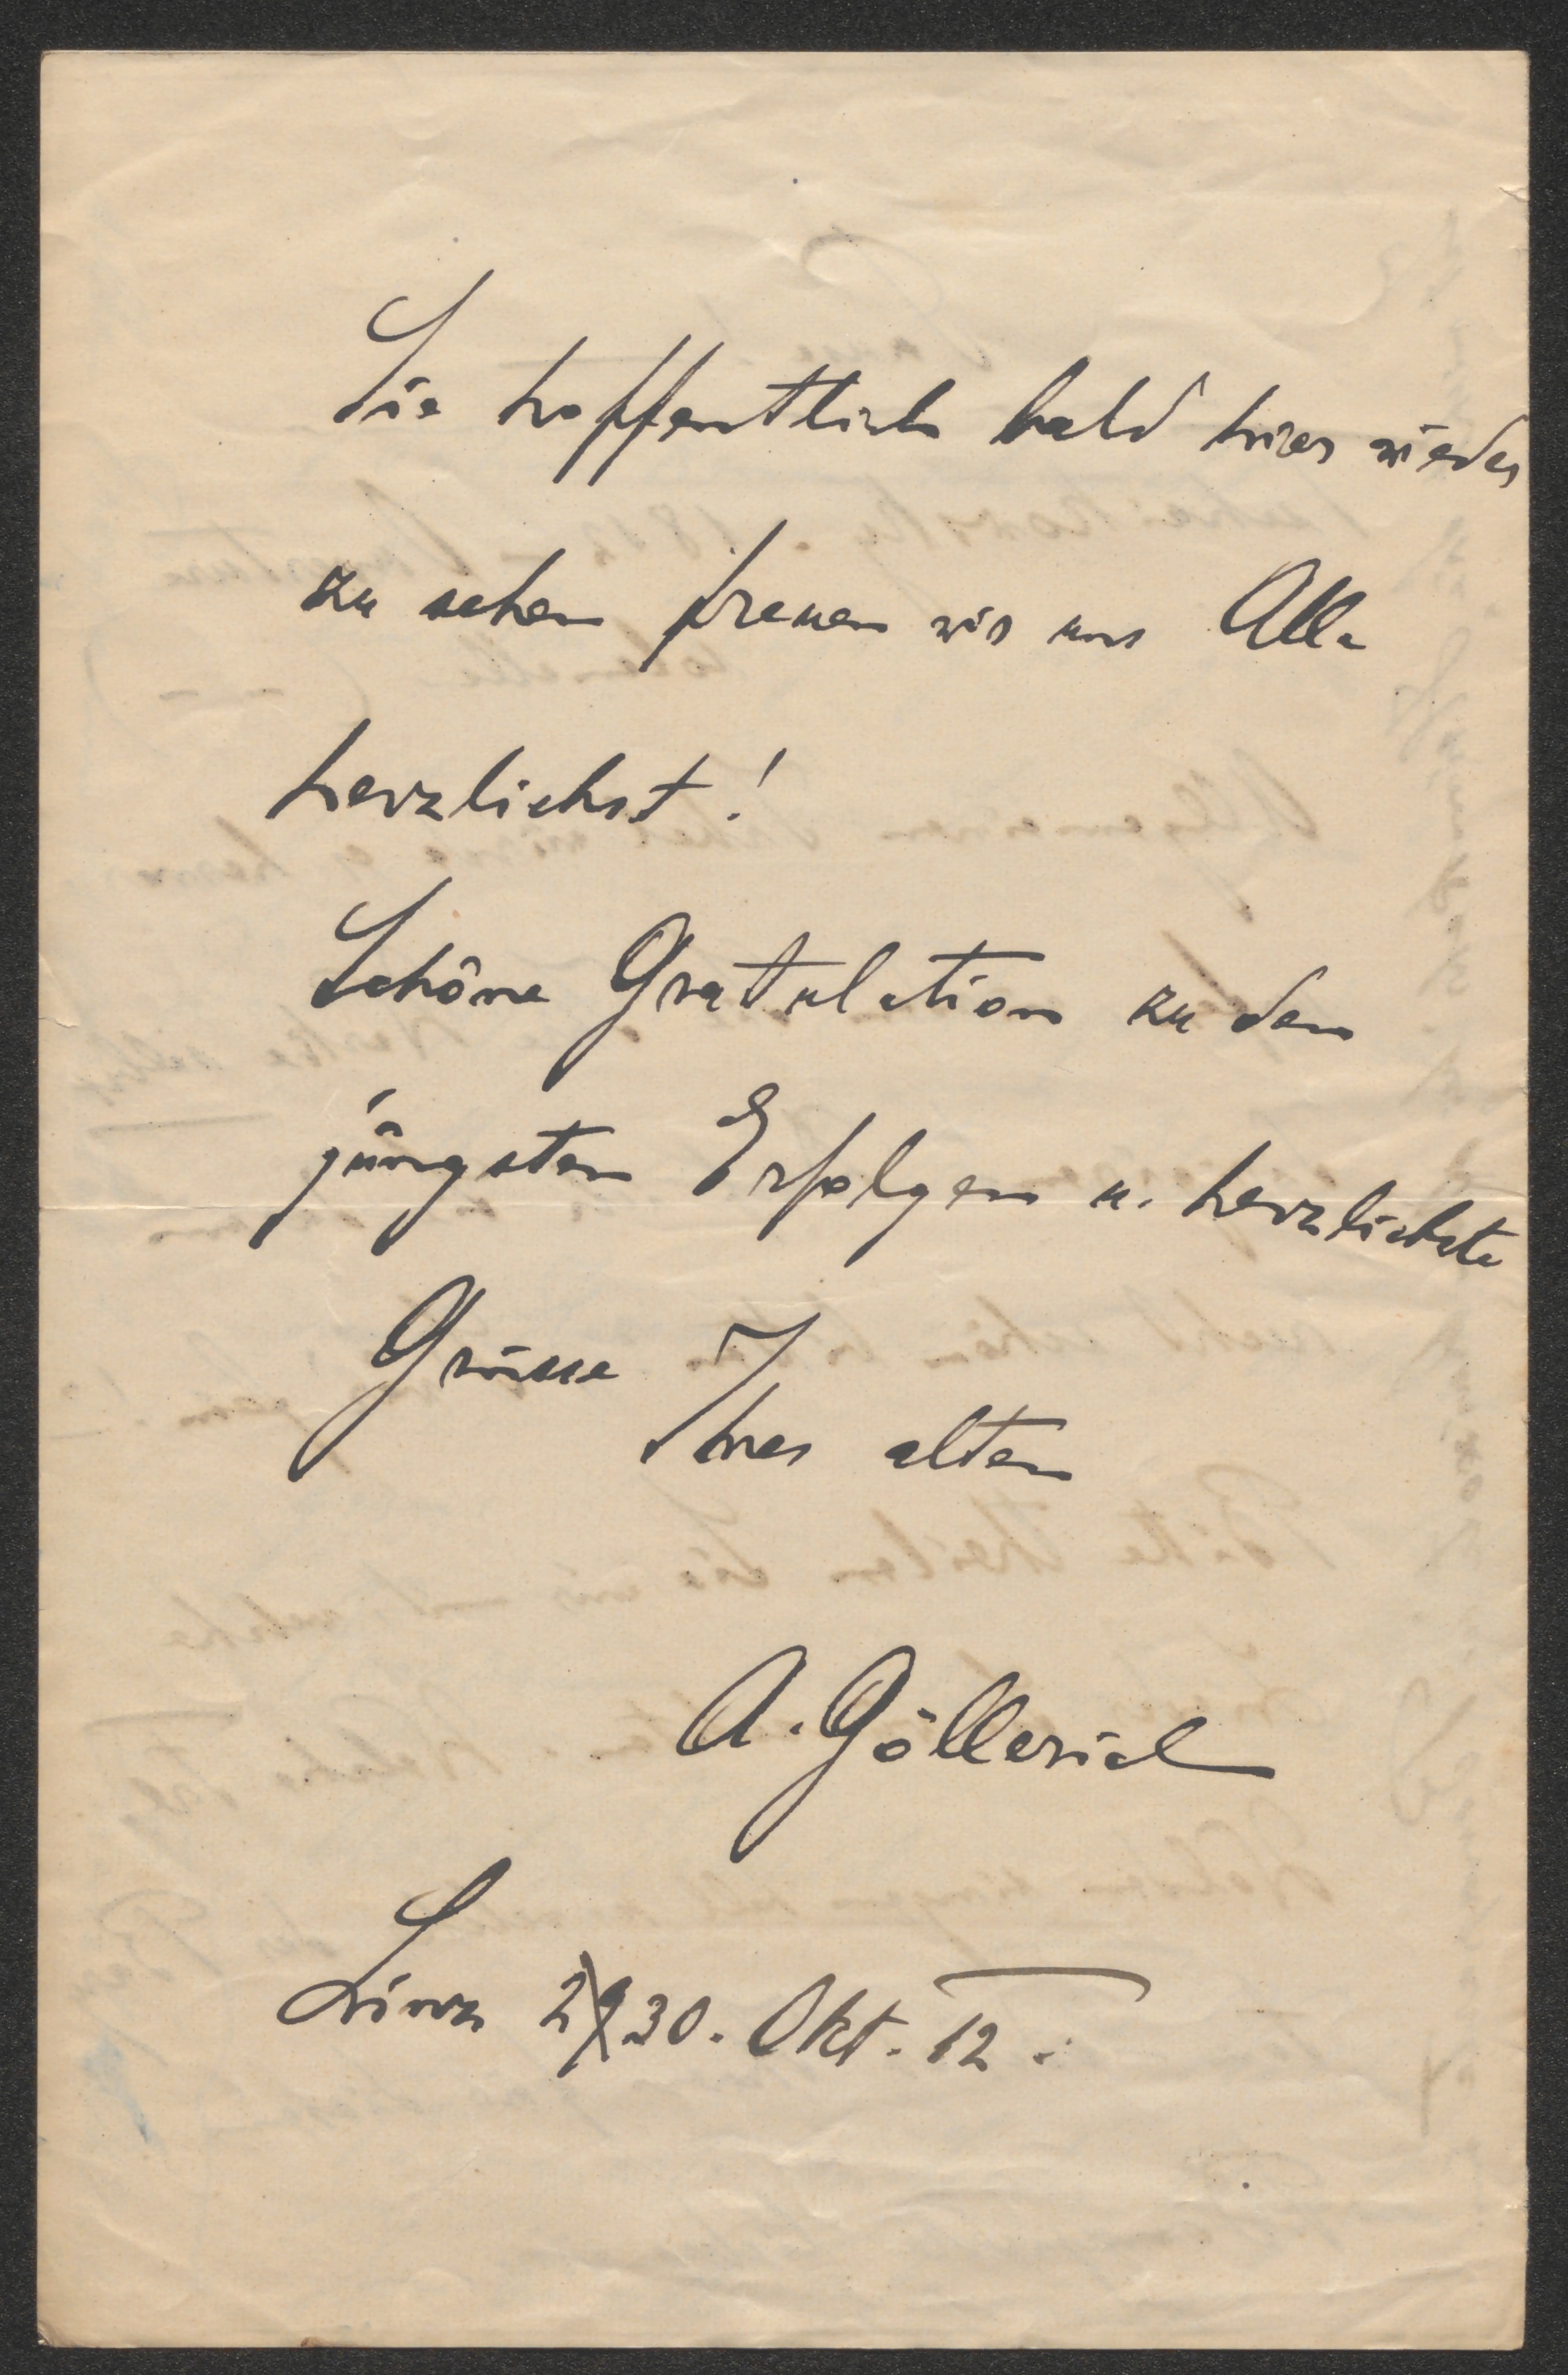 Sie hoffentlich bald hier wieder
zu sehen freuen wir uns Alle
herzlichst!
Schöne Gratulation zu den
jüngsten Erfolgen u. herzlichste
Grüsse
Ihres alten
A. Göllerich
Linz 29 30. Okt. 12.